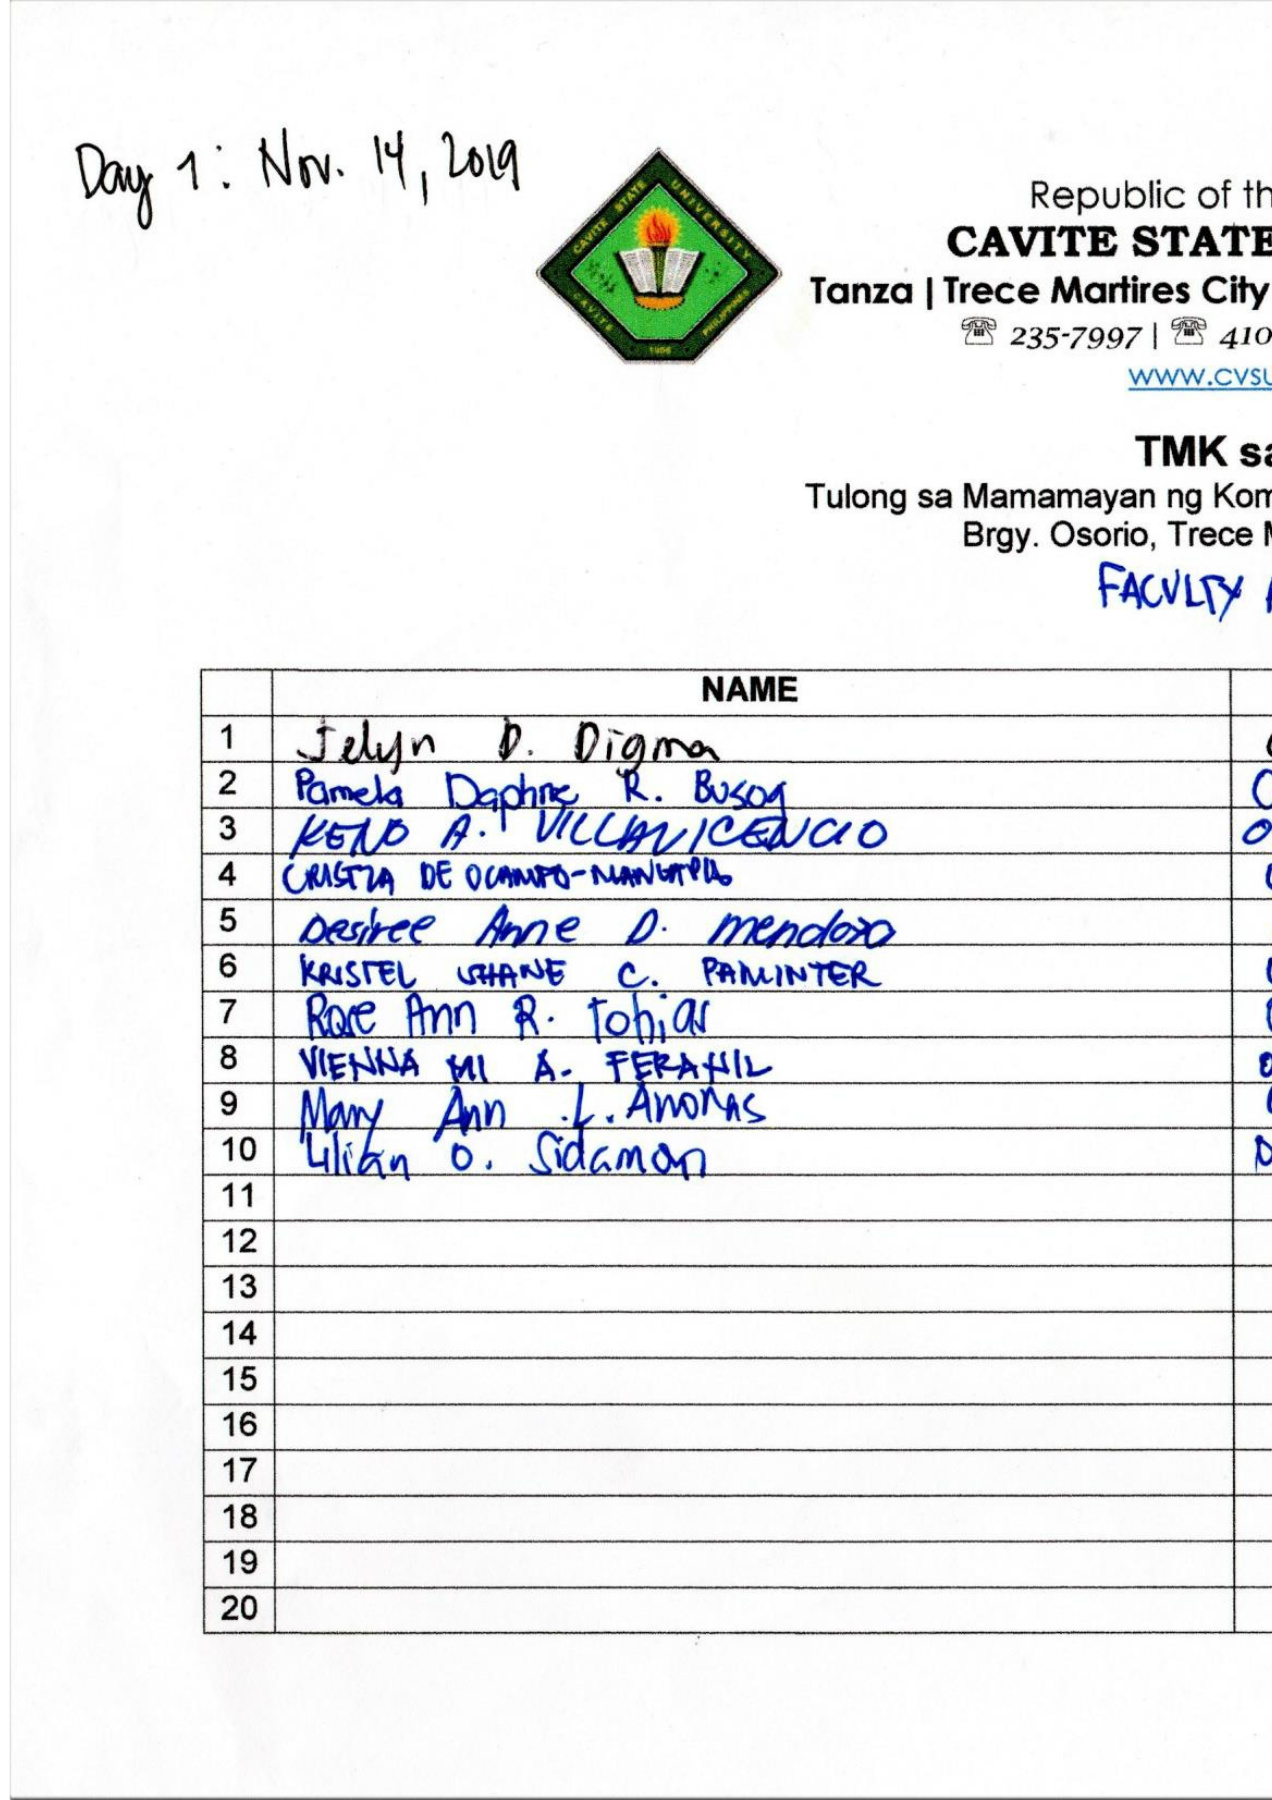 Day 1: Nov. 14, 2019
CAVITE STATE UNIVERSITY
CAVITE PHILIPPINES
1906
Republic of th
CAVITE STATE
Tanza | Trece Martires City
☎ 235-7997 | ☎ 410
www.cvsu
TMK sa
Tulong sa Mamamayan ng Kom
Brgy. Osorio, Trece M
FACULTY A
NAME
1 Jelyn D. Digma
2 Pamela Daphne R. Busog
3 KENO A. VILLAVICENCIO
4 CRISTZA DE OCAMPO-
5 Desiree Anne D. Mendoza
6 KRISTEL SHANE C. PAMINTER
7 Rose Ann R. Tobias
8 VIENNA MI A. FERANIL
9 Mary Ann L. Anonas
10 Lilian O. Sidamon
11
12
13
14
15
16
17
18
19
20